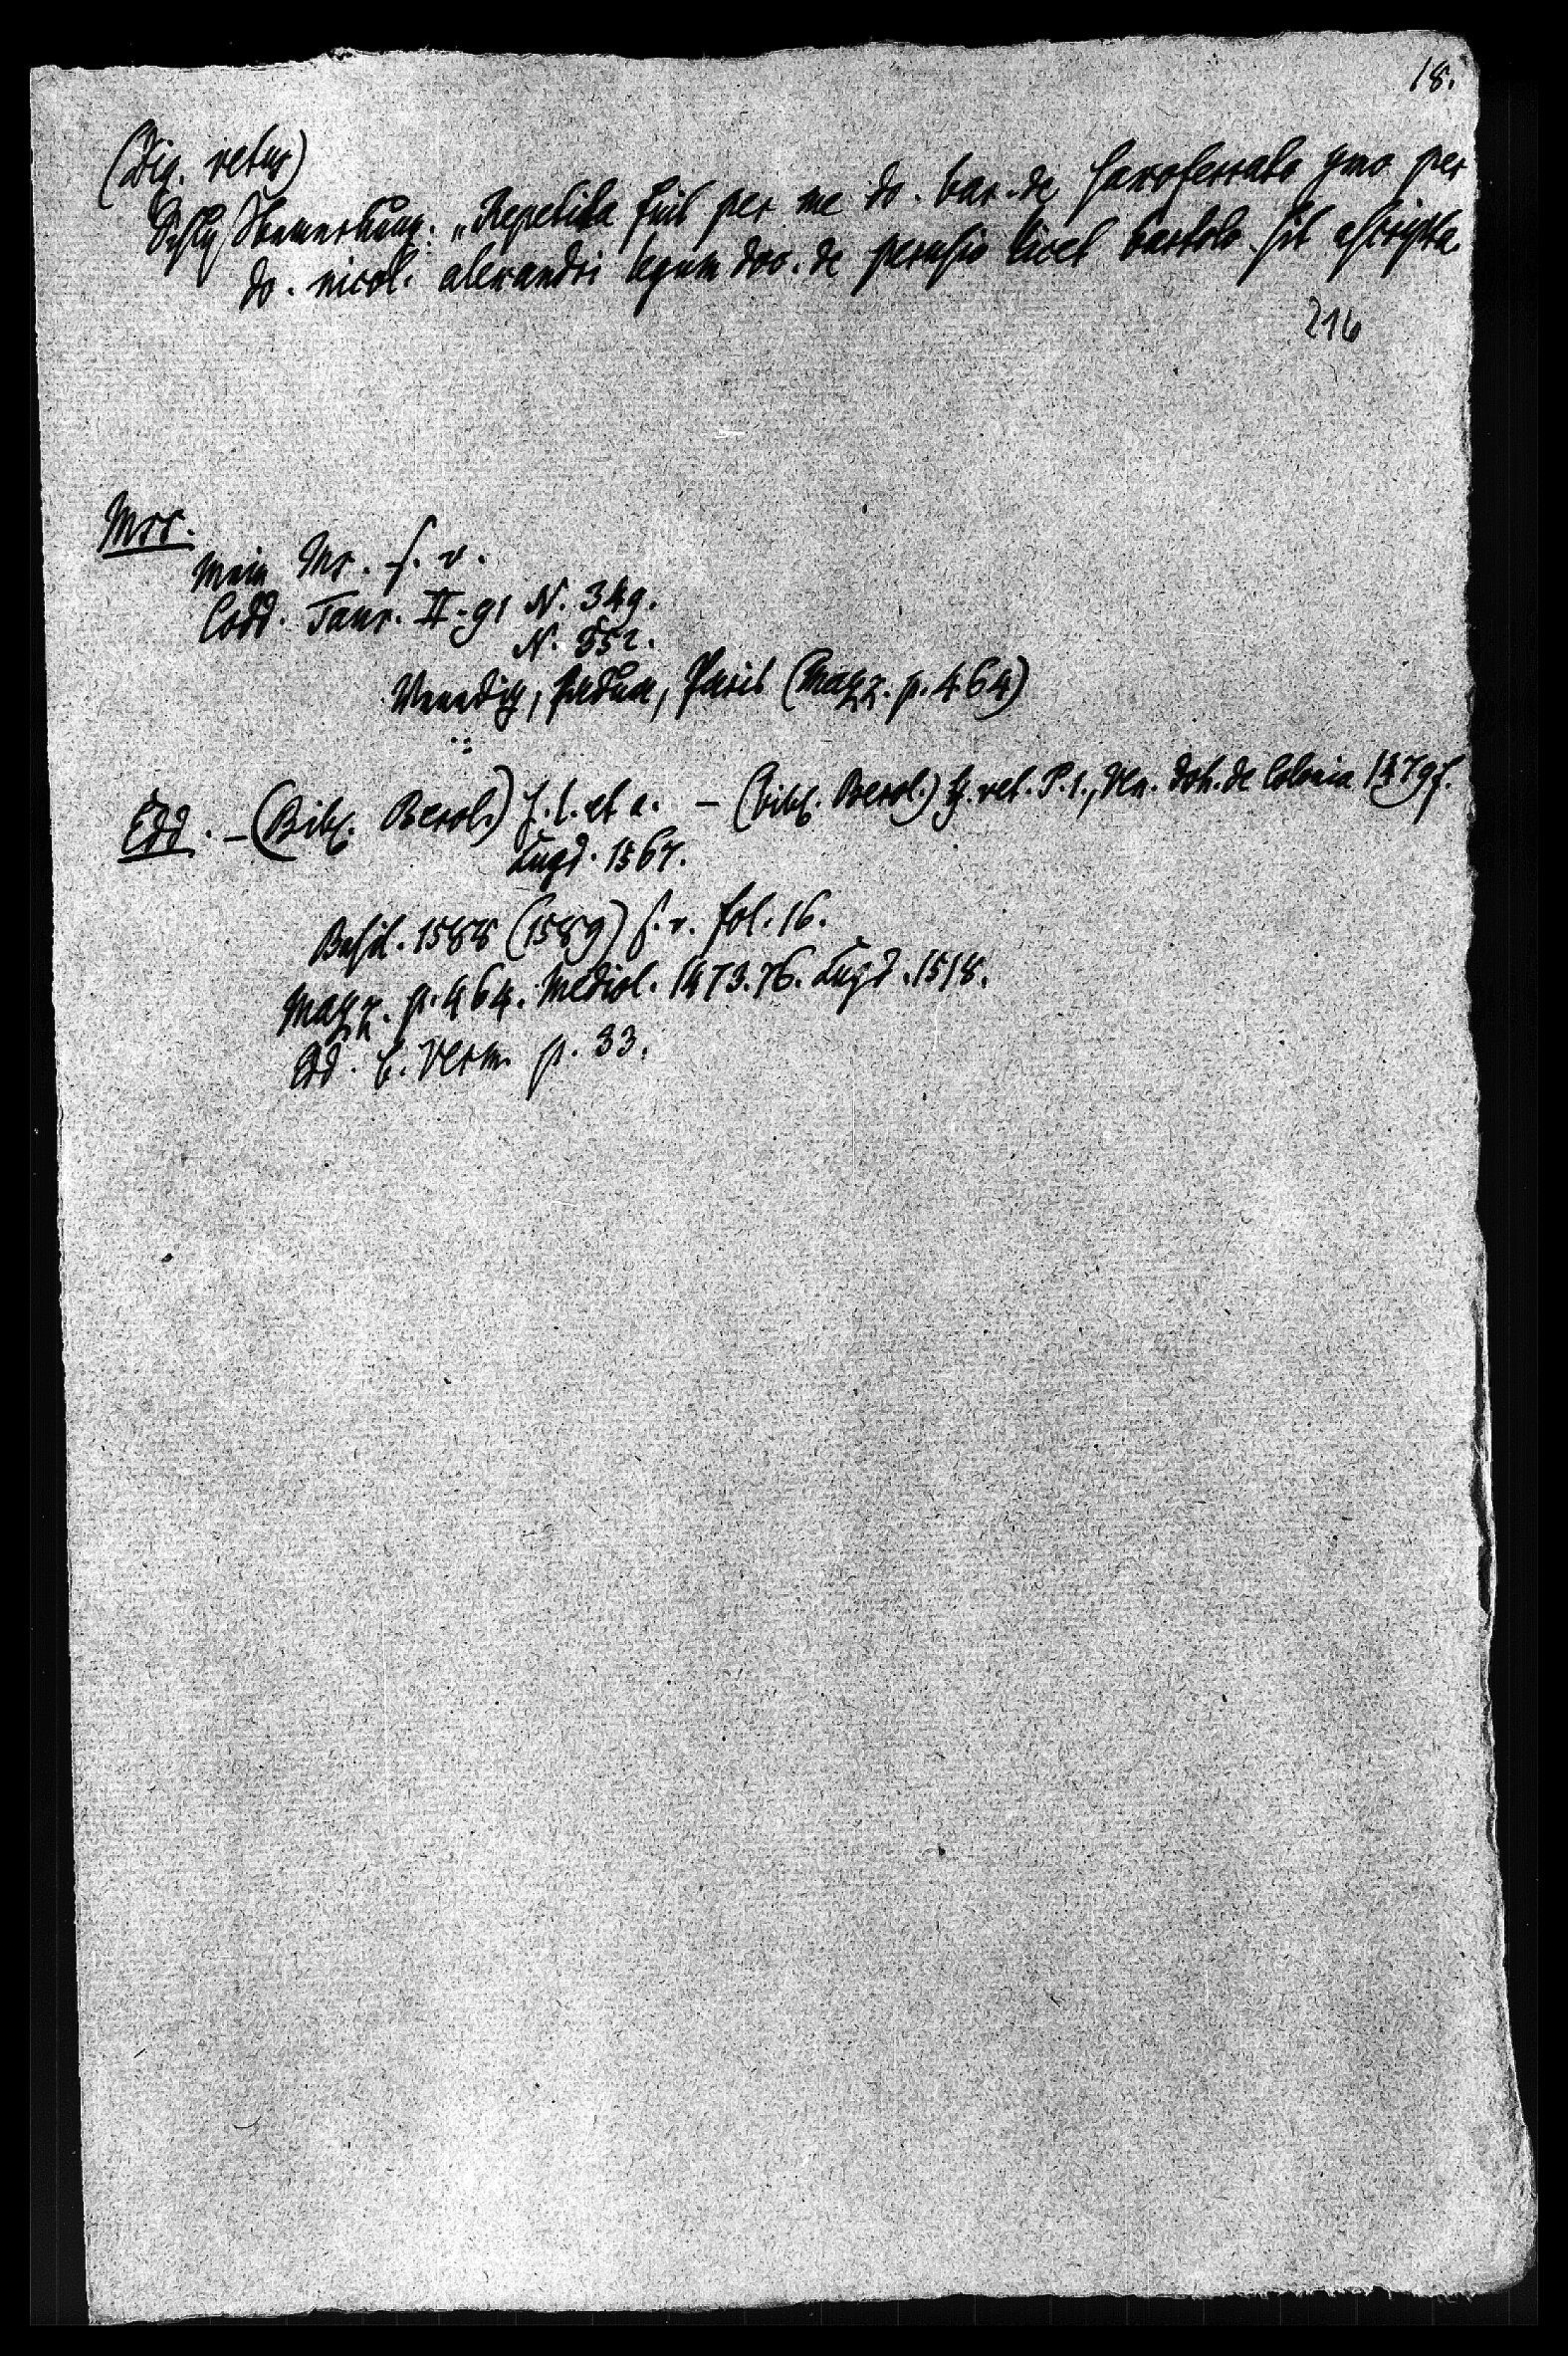 18.
(Dig. vetus)
Bemerkung: „Repetita fuit per me do. bar. de Saxoferrato ymo per
do. nicol. alexandri legum doc. de perusio licet bartolo sit ascripta
216
Mss.
Mein Ms. s. v.
Codd. Taur. II. 91 N. 349.
N. 552.
Venedig, Padua, Paris (Mazz. p. 464)
Edd. – (Bibl. Berol.) s. l. et a. – (bibl. Berol.) ff. vet. P. 1., Ven. Joh. de Colonia 1479 f.
Lugd. 1567.
Basil. 1588 (1589) s. v. fol. 16.
Mazz. p. 464. Mediol. 1473. 76. Lugd. 1518.
Verm. p. 33.